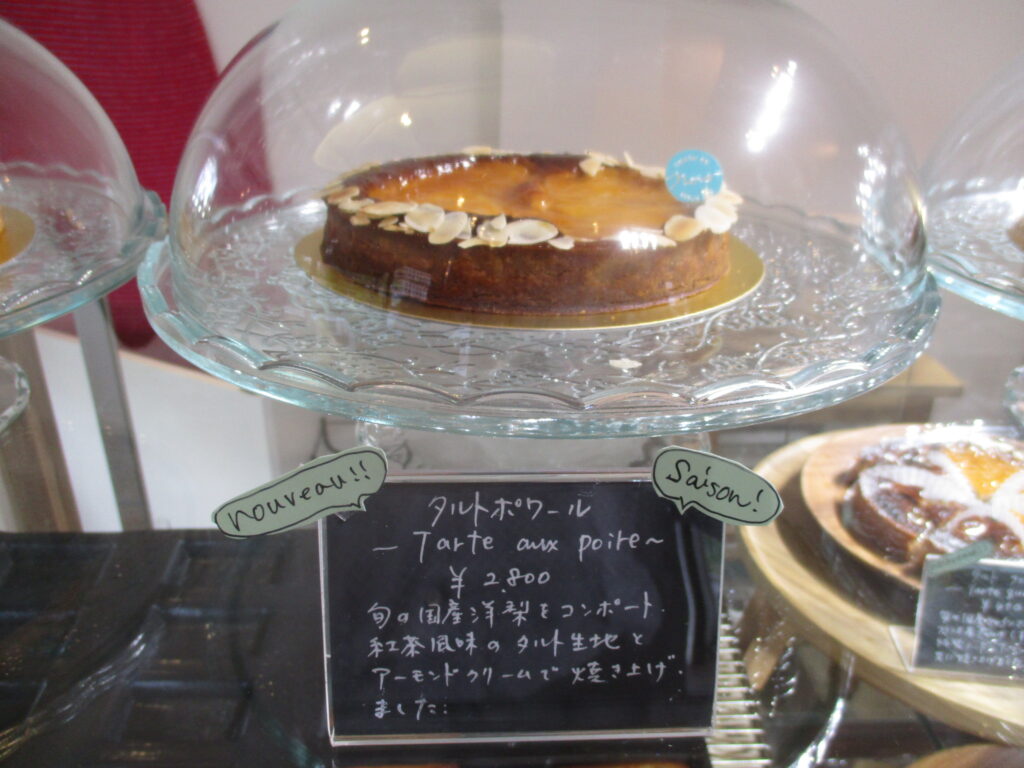 nouveau!!
Saison!
タルトポワール
— Tarte aux poire~
¥ 2.800
旬の国産洋梨をコンポート.
紅茶風味のタルト生地と
アーモンドクリームで焼き上げ.
ました.